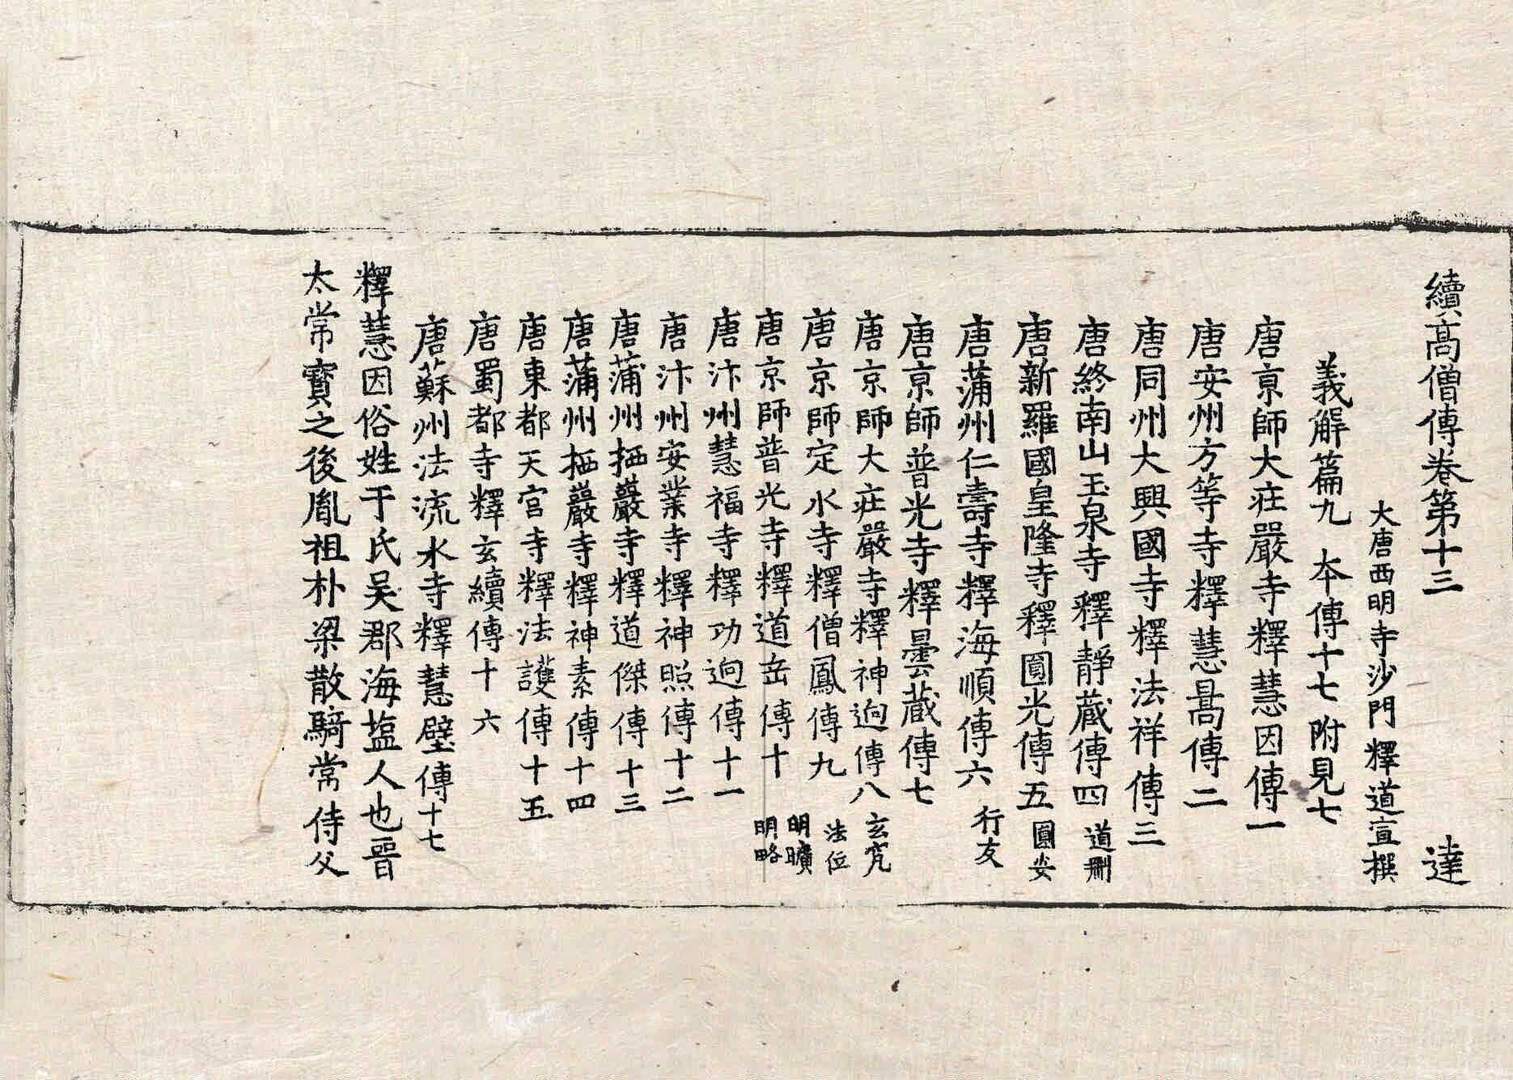 續高僧傳卷第十三 達
大唐西明寺沙門釋道宣撰
義解篇九 本傳十七 附見七
唐京師大莊嚴寺釋慧因傳一
唐安州方等寺釋慧暠傳二
唐同州大興國寺釋法祥傳三
唐終南山玉泉寺釋靜藏傳四 道刪
唐新羅國皇隆寺釋圓光傳五 圓安
唐蒲州仁壽寺釋海順傳六 行友
唐京師普光寺釋曇藏傳七
唐京師大莊嚴寺釋神迥傳八 玄究
唐京師定水寺釋僧鳳傳九 法位
唐京師普光寺釋道岳傳十 明曠 明略
唐汴州慧福寺釋功迥傳十一
唐汴州安業寺釋神照傳十二
唐蒲州栖巖寺釋道傑傳十三
唐蒲州栖巖寺釋神素傳十四
唐東都天宮寺釋法護傳十五
唐蜀都寺釋玄續傳十六
唐蘇州法流水寺釋慧璧傳十七
釋慧因俗姓于氏吳郡海塩人也晉
太常寶之後胤祖朴梁散騎常侍父